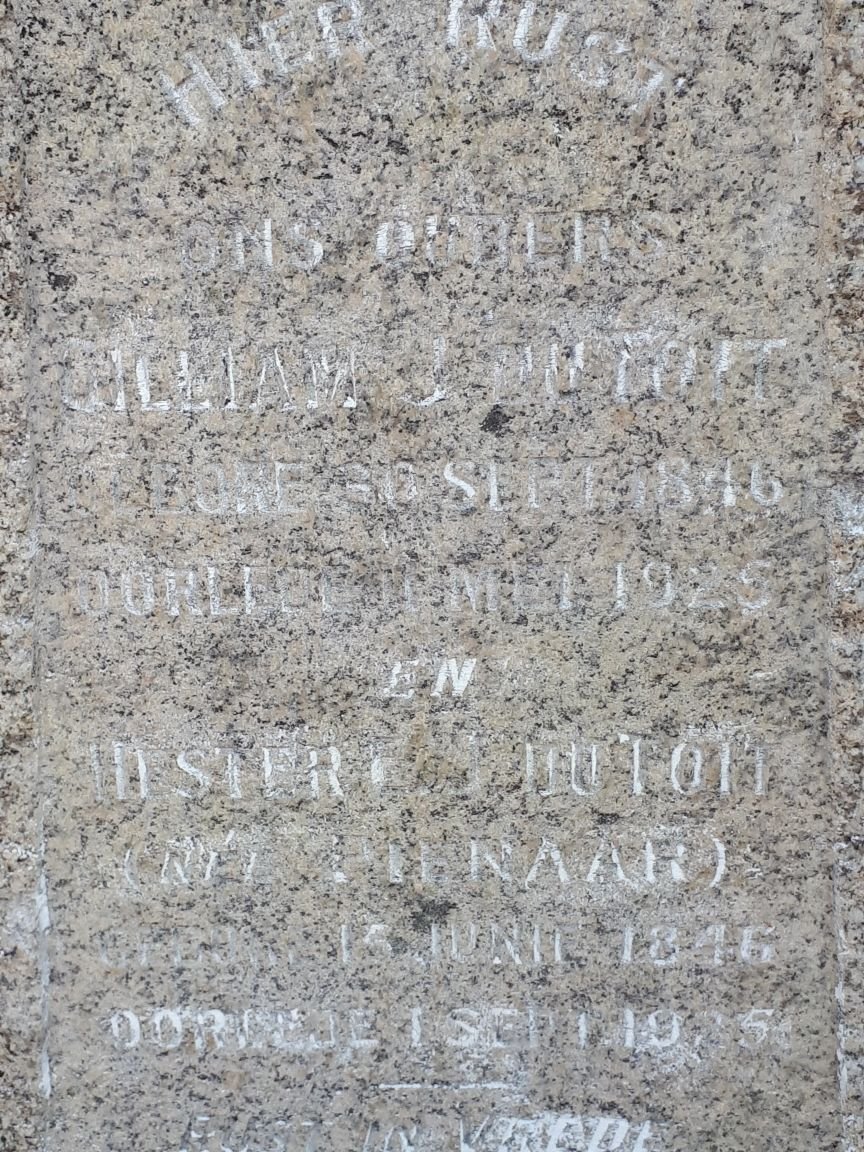 HIER RUST
ONS OUDERS
GILLIAM J. DU TOIT
GEBORE 30 SEPT. 1846
OORLEDE 11 MEI 1925
EN
HESTER C. J. DU TOIT
(NÉE PIENAAR)
GEBORE 15 JUNIE 1846
OORLEDE 1 SEPT. 19 5
RUST IN VREDE